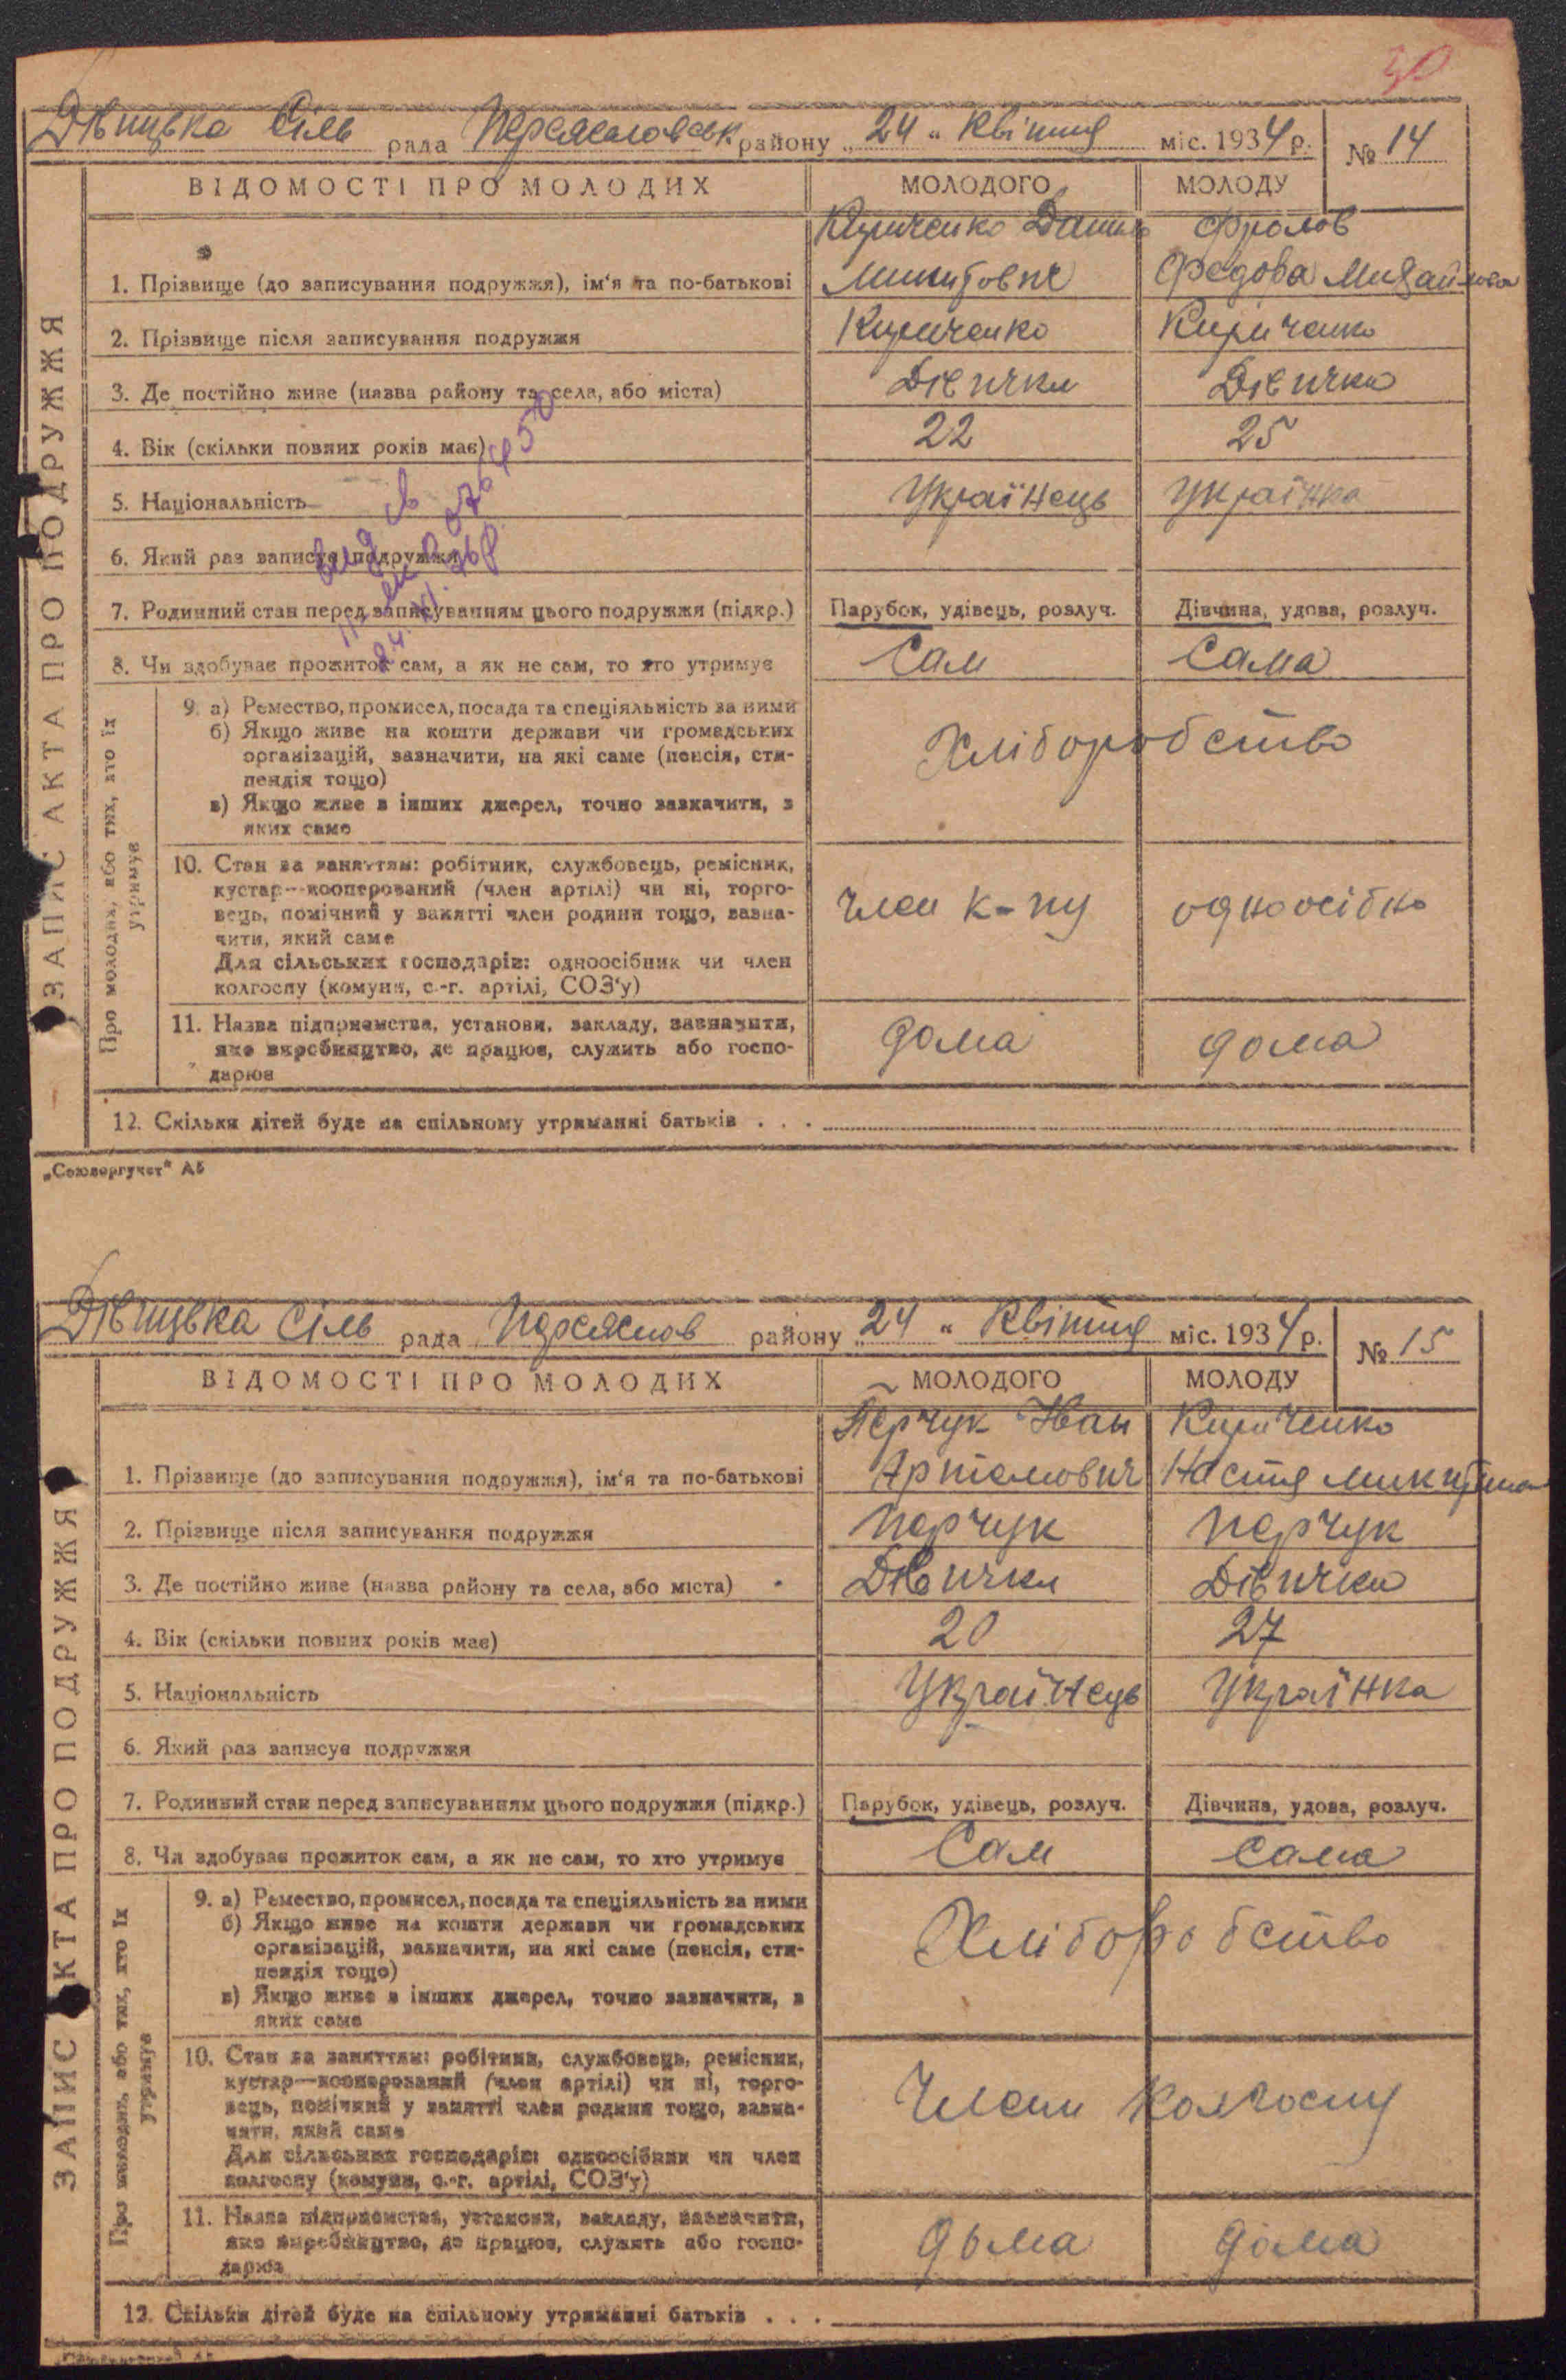 30
Дівицька Сіль рада Переяславськ району „ 24 “ Квітня міс. 1934 р. № 14
ВІДОМОСТІ ПРО МОЛОДИХ МОЛОДОГО МОЛОДУ
Кириченко Данило Фролов
1. Прізвище (до записування подружжя), ім'я та по-батькові Микитович Федова Михайлова
2. Прізвище після записування подружжя Кириченко Кириченко
3. Де постійно живе (назва району та села, або міста) Дівички Дівички
4. Вік (скільки повних років має) 22 25
5. Національність Українець Українка
6. Який раз записує подружжя
7. Родинний стан перед записуванням цього подружжя (підкр.) Парубок, удівець, розлуч. Дівчина, удова, розлуч.
8. Чи здобуває прожиток сам, а як не сам, то хто утримує Сам Сама
ЗАПИС АКТА ПРО ПОДРУЖЖЯ
Про молодих, або тих, хто їх
утримує
9. а) Ремество, промисел, посада та спеціяльність за ними
б) Якщо живе на кошти держави чи громадських
організацій, зазначити, на які саме (пенсія, сти-
пендія тощо)
Хліборобство
в) Якщо живе з інших джерел, точно зазначити, з
яких саме
10. Стан за заняттям: робітник, службовець, ремісник,
кустар—кооперований (член артілі) чи ні, торго-
вець, помічний у занятті член родини тощо, зазна- член к-пу одноосібно
чити, який саме
Для сільських господарів: одноосібник чи член
колгоспу (комуни, с.-г. артілі, СОЗ'у)
11. Назва підприємства, установи, закладу, зазначити,
яке виробництво, де працює, служить або госпо- дома дома
дарює
12. Скільки дітей буде на спільному утриманні батьків . . .
„Союзоргучет“ АБ
Дівицька Сіль рада Переяслов району „ 24 “ Квітня міс. 1934 р. № 15
ВІДОМОСТІ ПРО МОЛОДИХ МОЛОДОГО МОЛОДУ
Перчук Іван Кириченко
1. Прізвище (до записування подружжя), ім'я та по-батькові Артемович Настя
2. Прізвище після записування подружжя Перчук Перчук
3. Де постійно живе (назва району та села, або міста) Дівички Дівички
4. Вік (скільки повних років має) 20 27
5. Національність Українець Українка
6. Який раз записує подружжя
7. Родинний стан перед записуванням цього подружжя (підкр.) Парубок, удівець, розлуч. Дівчина, удова, розлуч.
8. Чи здобуває прожиток сам, а як не сам, то хто утримує Сам сама
ЗАПИС АКТА ПРО ПОДРУЖЖЯ
Про молодих, або тих, хто їх
утримує
9. а) Ремество, промисел, посада та спеціяльність за ними
б) Якщо живе на кошти держави чи громадських
організацій, зазначити, на які саме (пенсія, сти-
пендія тощо)
Хліборобство
в) Якщо живе з інших джерел, точно зазначити, з
яких саме
10. Стан за заняттям: робітник, службовець, ремісник,
кустар—кооперований (член артілі) чи ні, торго-
вець, помічний у занятті член родини тощо, зазна- Члени Колгоспу
чити, який саме
Для сільських господарів: одноосібник чи член
колгоспу (комуни, с.-г. артілі, СОЗ'у)
11. Назва підприємства, установи, закладу, зазначити,
яке виробництво, де працює, служить або госпо- дома дома
дарює
12. Скільки дітей буде на спільному утриманні батьків . . .